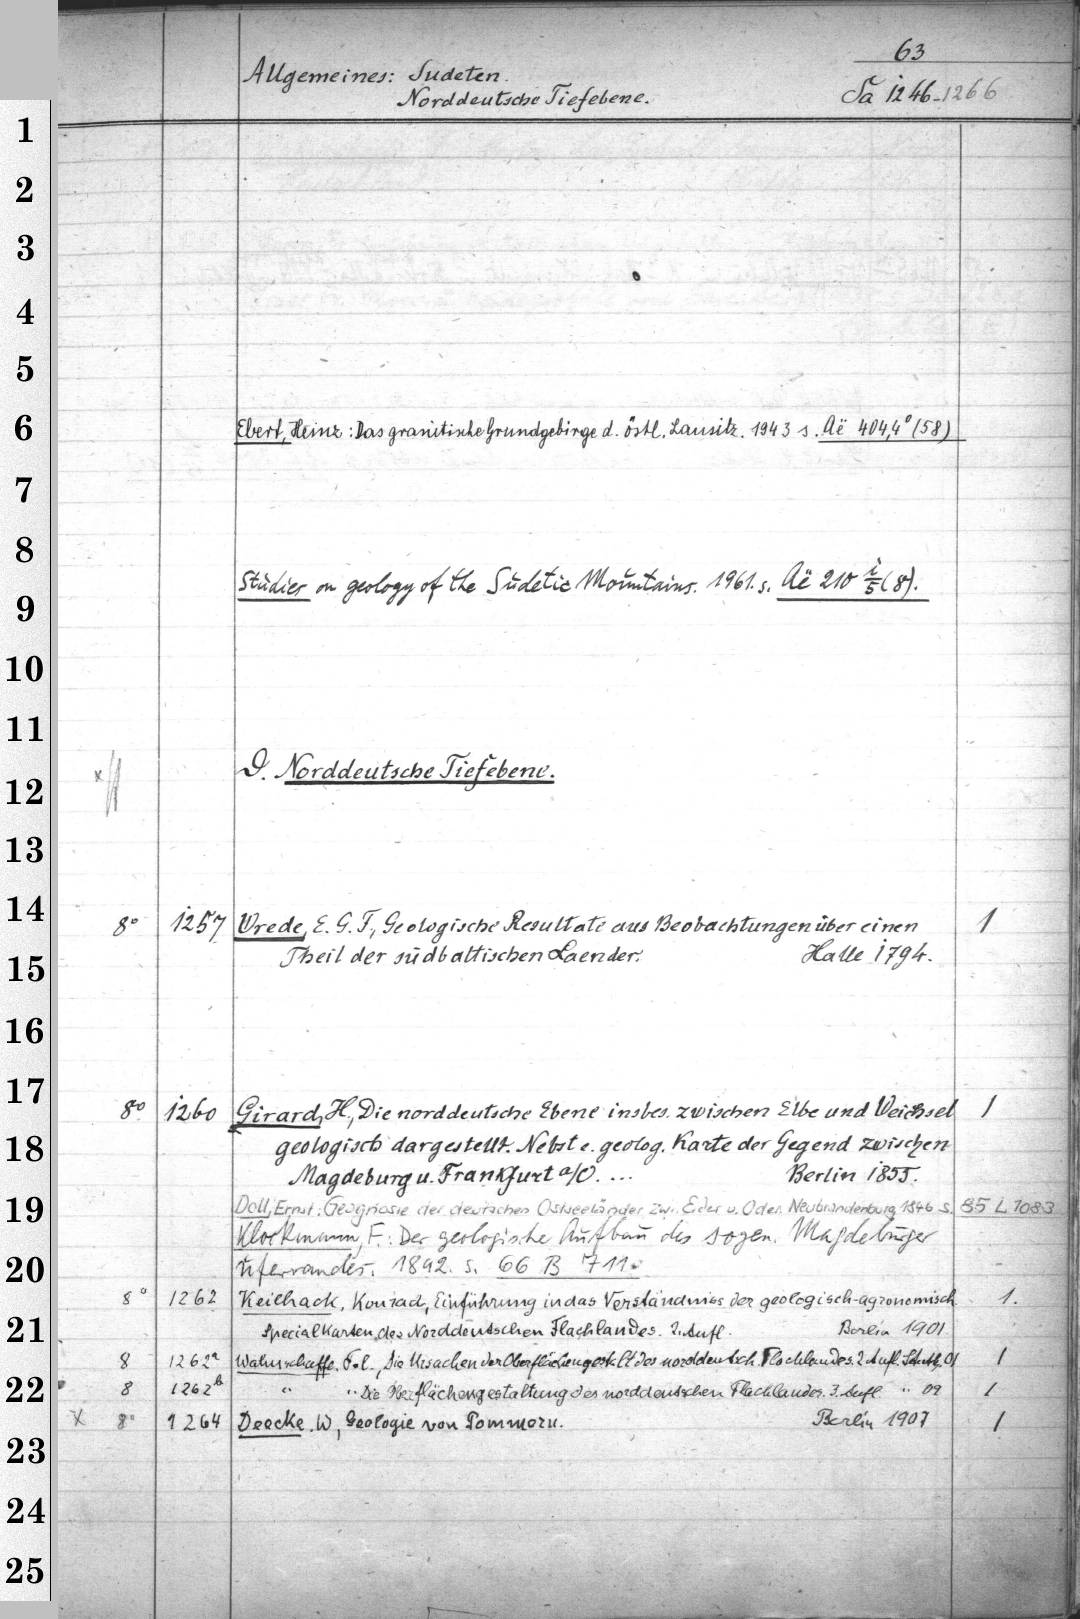 63
Allgemeines: Sudeten.
Norddeutsche Tiefebene.
Sa 1246-1266
1
2
3
4
5
6 Ebert, Heinz: Das granitische Grundgebirge d. östl. Lausitz. 1943 s. Aë 404,4° (58)
7
8
Studies on geology of the Sudetic Mountains. 1961. s. Aë 210 i/5 (8).
9
10
11
12 D. Norddeutsche Tiefebene.
13
14 8° 1257 Wrede, E. G. F., Geologische Resultate aus Beobachtungen über einen 1
15 Theil der südbaltischen Laender. Halle 1794.
16
17 8° 1260 Girard, H., Die norddeutsche Ebene insbes. zwischen Elbe und Weichsel 1
18 geologisch dargestellt. Nebst e. geolog. Karte der Gegend zwischen
Magdeburg u. Frankfurt a/O. ... Berlin 1855.
19 Boll, Ernst: Geognosie der deutschen Ostseeländer zw. Eider u. Oder. Neubrandenburg 1846 s. 85 L 1083
Klockmann, F.: Der geologische Aufbau des sogen. Magdeburger
20 Uferrandes. 1892. s. 66 B 711.
8° 1262 Keilhack, Konrad, Einführung in das Verständniss der geologisch-agronomisch 1.
21 Specialkarten des Norddeutschen Flachlandes. 2. Aufl. Berlin 1901
8 1262a Wahnschaffe, Fel., Die Ursachen der Oberflächengestalt des norddeutsch. Flachlandes. 2 Aufl. Stuttg. 01 1
22 8 1262b " " Die Oberflächengestaltung des norddeutschen Flachlandes. 3. Aufl. " 09 1
x 8° 1264 Deecke, W., Geologie von Pommern. Berlin 1907 1
23
24
25